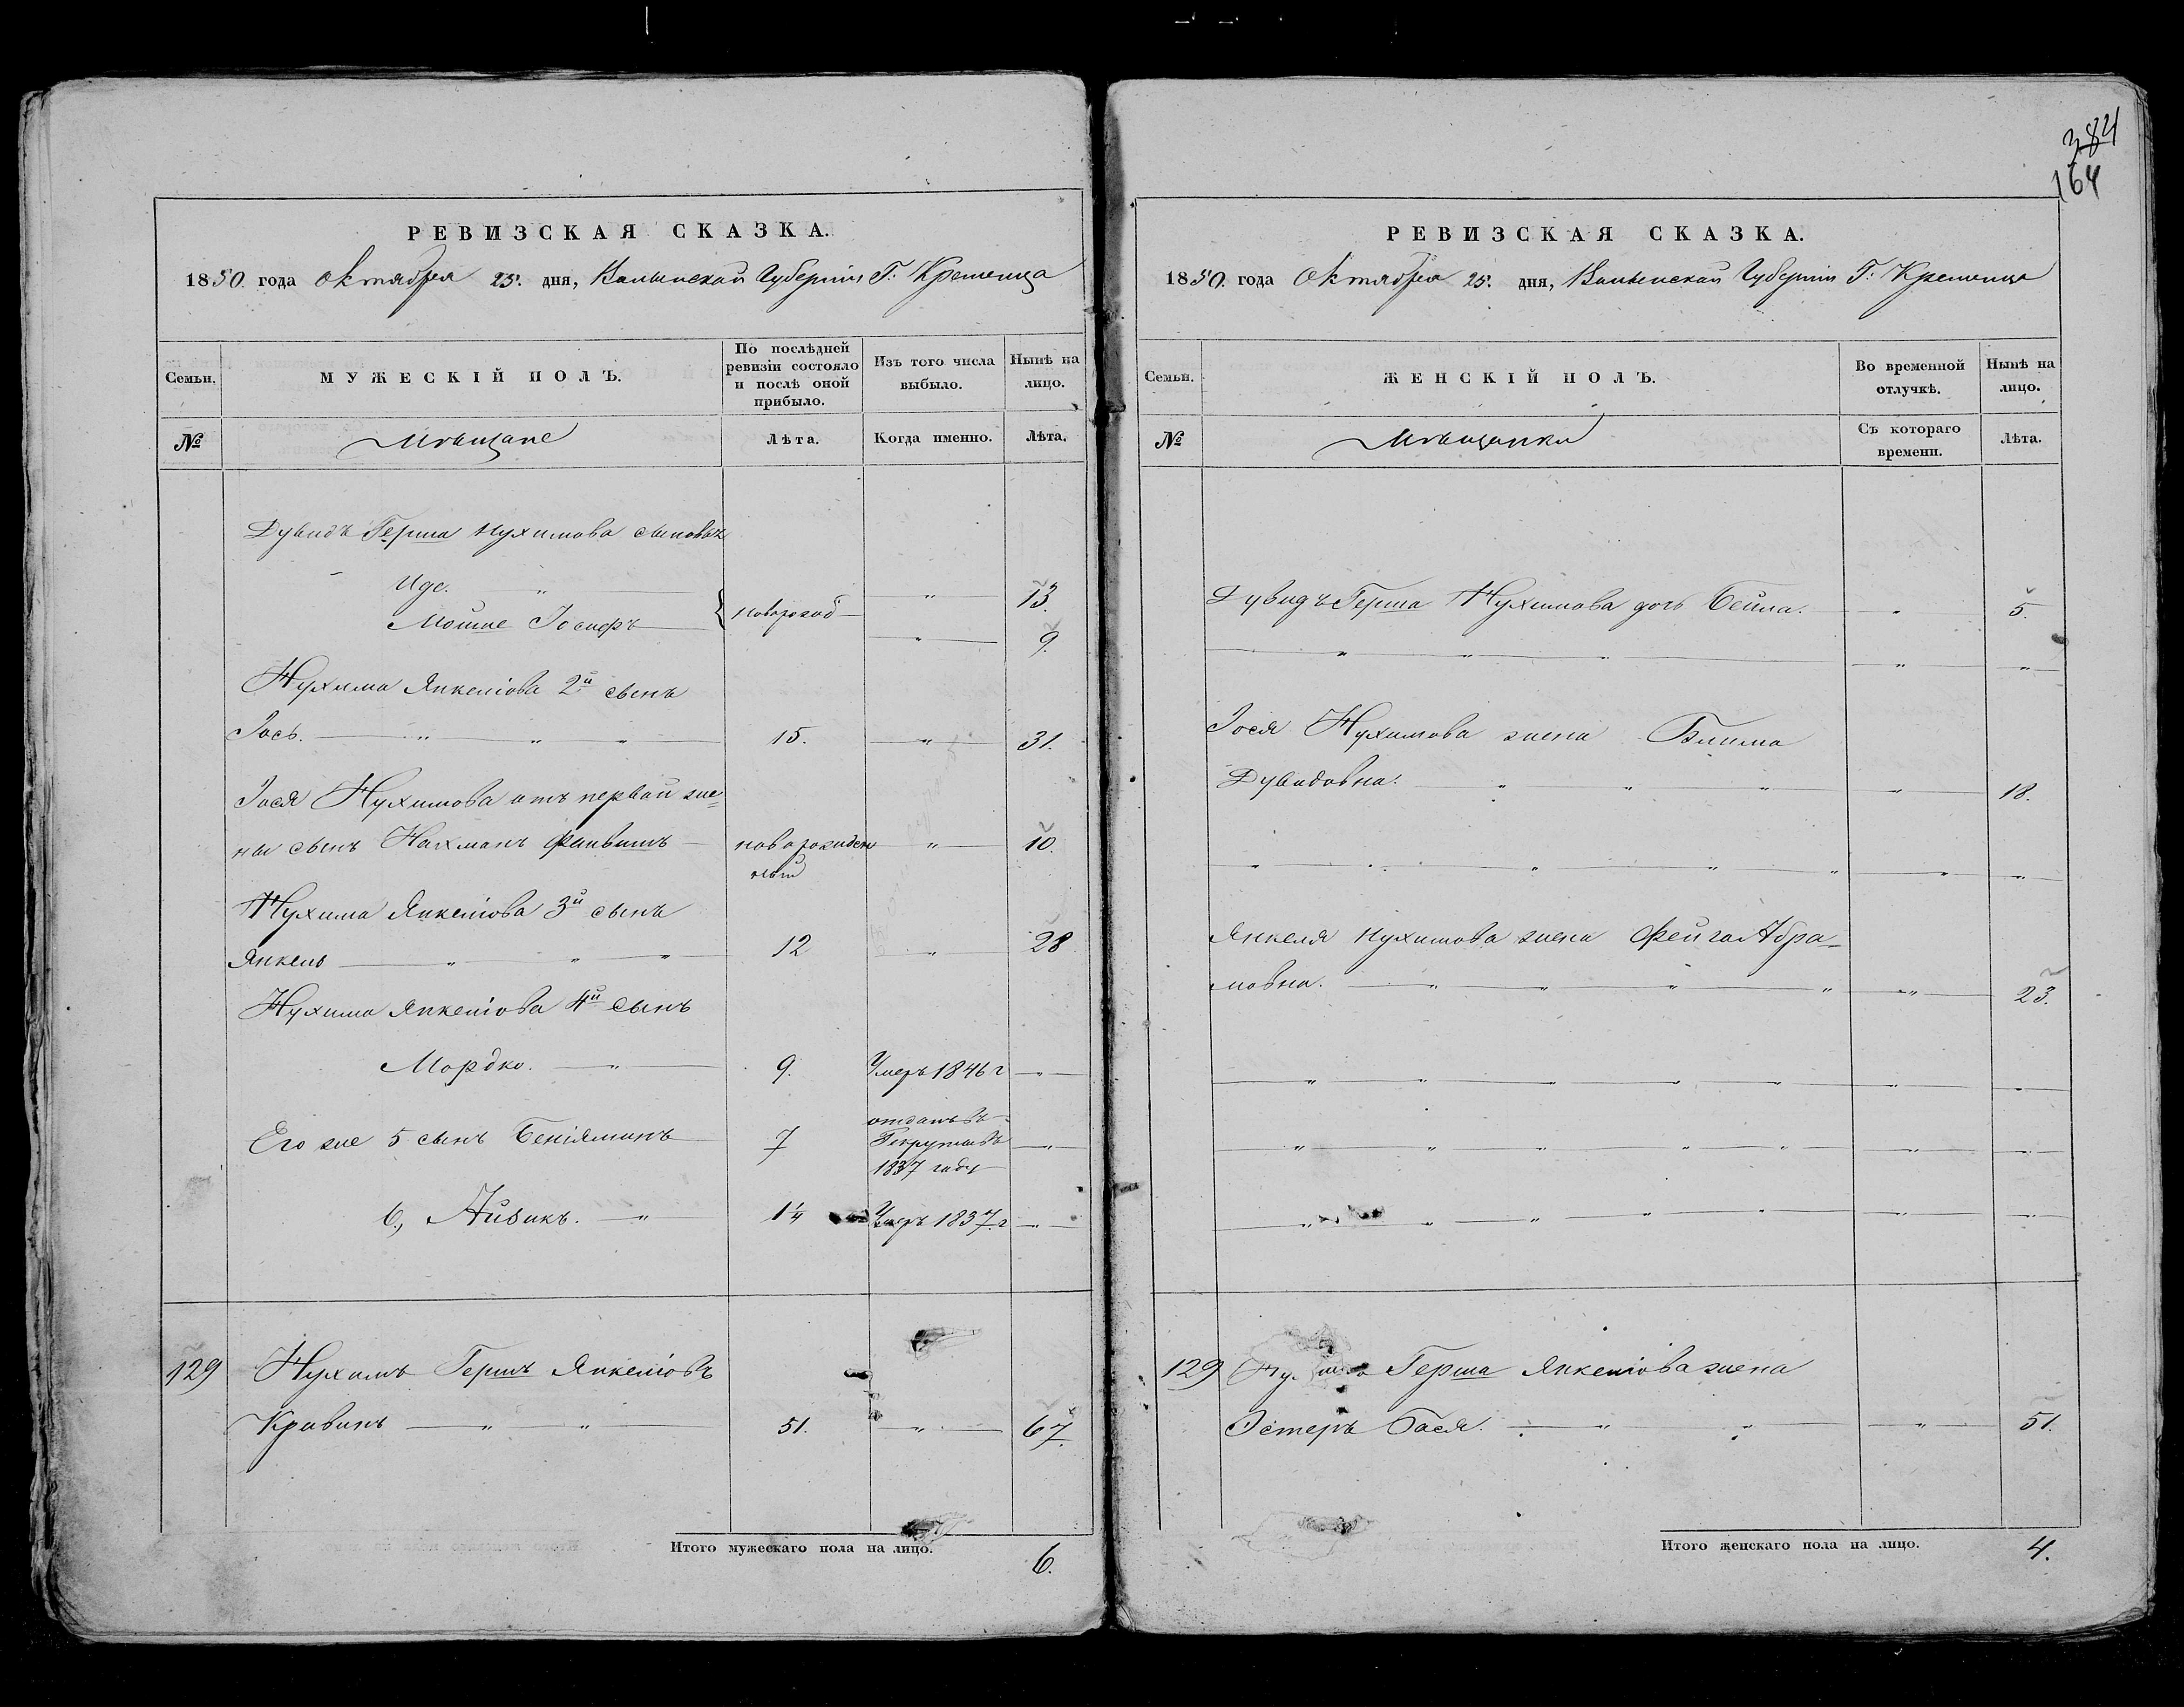 384
164
РЕВИЗСКАЯ СКАЗКА.
1850. года Октября 25. дня, Волынской Губерніи Г: Кременца
Семьи. МУЖЕСКІЙ ПОЛЪ. По послѣдней ревизіи состояло и послѣ оной прибыло. Изъ того числа выбыло. Нынѣ на лицо.
№ Мѣщане Лѣта. Когда именно. Лѣта.
Дувидъ Герша Нухимова сыновья
Иде. " новорожд " 13.
Мошие Іосифъ " 9.
Нухима Янкеліова 2й сынъ
Іось. " " " 15. " 31.
Іося Нухимова отъ первой же=
ны сынъ Нахманъ Файвишъ новорожден " 10.
ный
Нухима Янкеліова 3й сынъ
Янкель " " " 12 " 28
Нухима Янкеліова 4й сынъ
Мордко. " 9. Умеръ 1846 г "
Его же 5 сынъ Беніяминъ 7 отданъ въ Рекруты въ 1837 году "
6, Айзикъ. " 1¼ Умеръ 1837. г "
129 Нухимъ Гершъ Янкеліовъ
Кривинъ " " 51. " 67.
Итого мужескаго пола на лицо. 6.
РЕВИЗСКАЯ СКАЗКА.
1850. года Октября 25. дня, Волынской Губерніи Г: Кременца
Семьи. ЖЕНСКІЙ ПОЛЪ. Во временной отлучкѣ. Нынѣ на лицо.
№ Мѣщанки Съ котораго времени. Лѣта.
Дувидъ Герша Нухимова дочь Бейла. " 5.
" " " " "
Іося Нухимова жена Блима
Дувидовна. " " " " 18.
" " " " " " "
Янкеля Нухимова жена Фейга Абра-
мовна. " " " " " 23.
" " " " " " "
" " " " " " "
" " " " " " "
129 Герша Янкеліова жена
Эстеръ Бася. " " " 51.
Итого женскаго пола на лицо. 4.